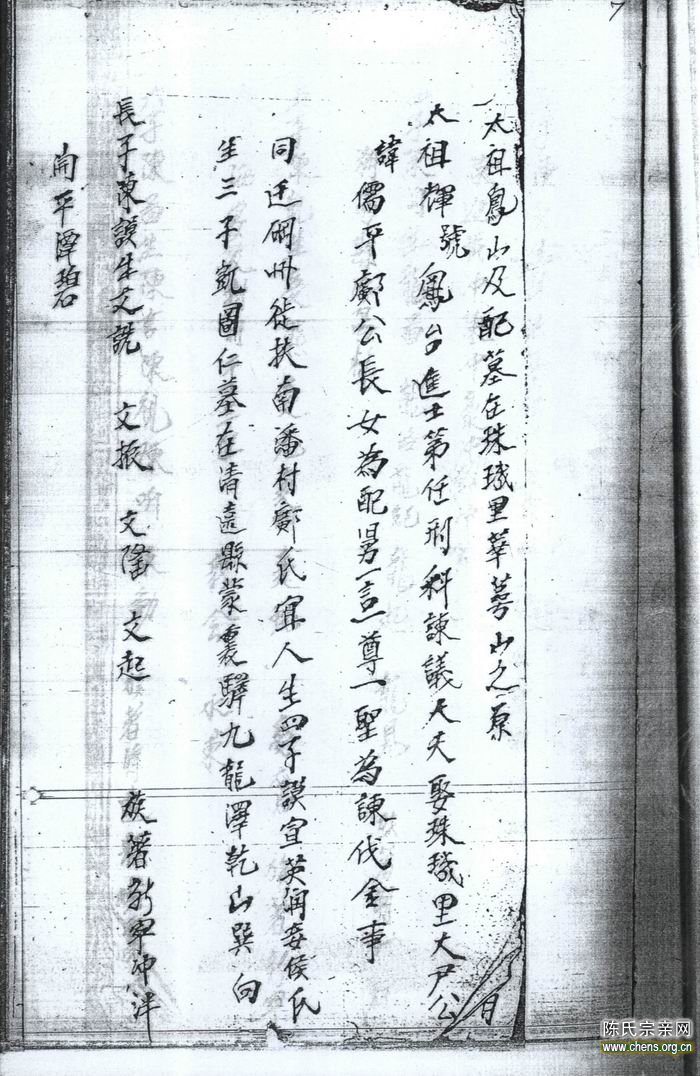 7
太祖鳳山及配墓在珠璣里華萼山之原
太祖輝號鳳台進士第任刑科諫議大夫娶珠璣里大尹公日
諱儒平鄺公長女為配男一言一尊一聖為諫伐金事
同迁硐州徙扶南潘村鄺氏宜人生四子謨宣英侢妾侯氏
生三子凱圖仁墓在清遠縣蒙裏驛九龍澤乾山巽向
長子陳謨生文詵 文振 文隆 文起 族著新寧沖泮
開平潭碧
陈氏宗亲网
www.chens.org.cn